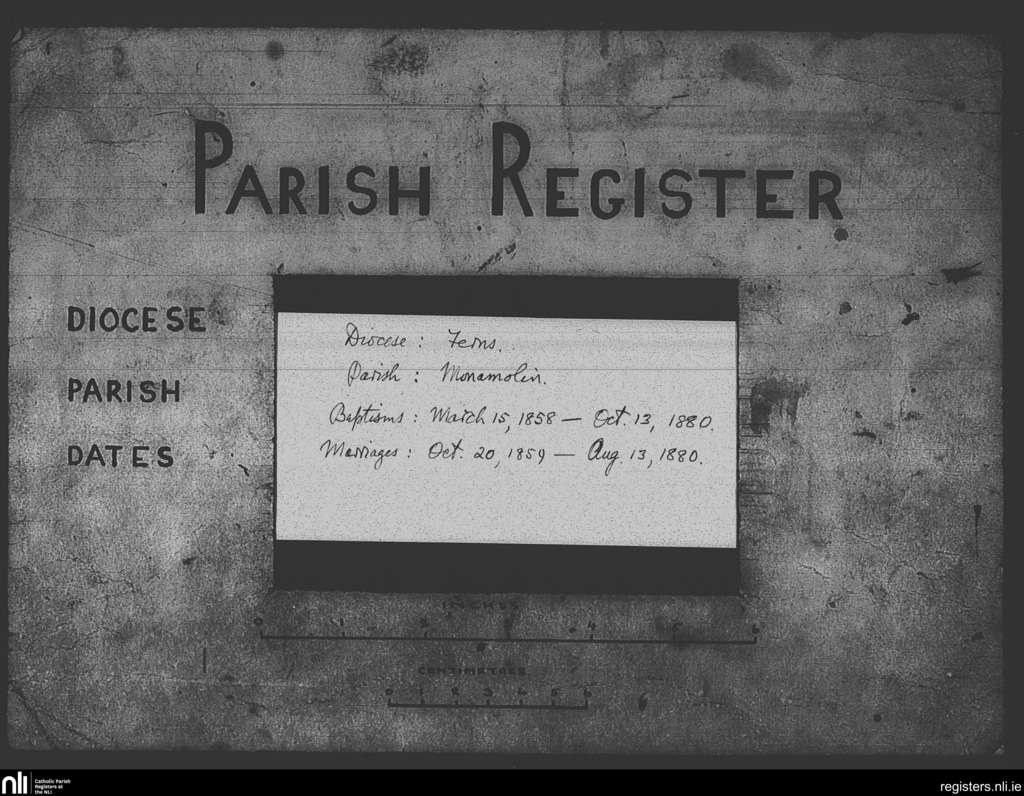 PARISH REGISTER
DIOCESE
PARISH
DATES
Diocese : Ferns.
Parish : Monamolin.
Baptisms : March 15, 1858 — Oct. 13, 1880.
Marriages : Oct. 20, 1859 — Aug. 13, 1880.
INCHES
0 1 2 3 4 5 6
CENTIMETRES
0 1 2 3 4 5 6
nli
Catholic Parish
Registers at
the NLI
registers.nli.ie